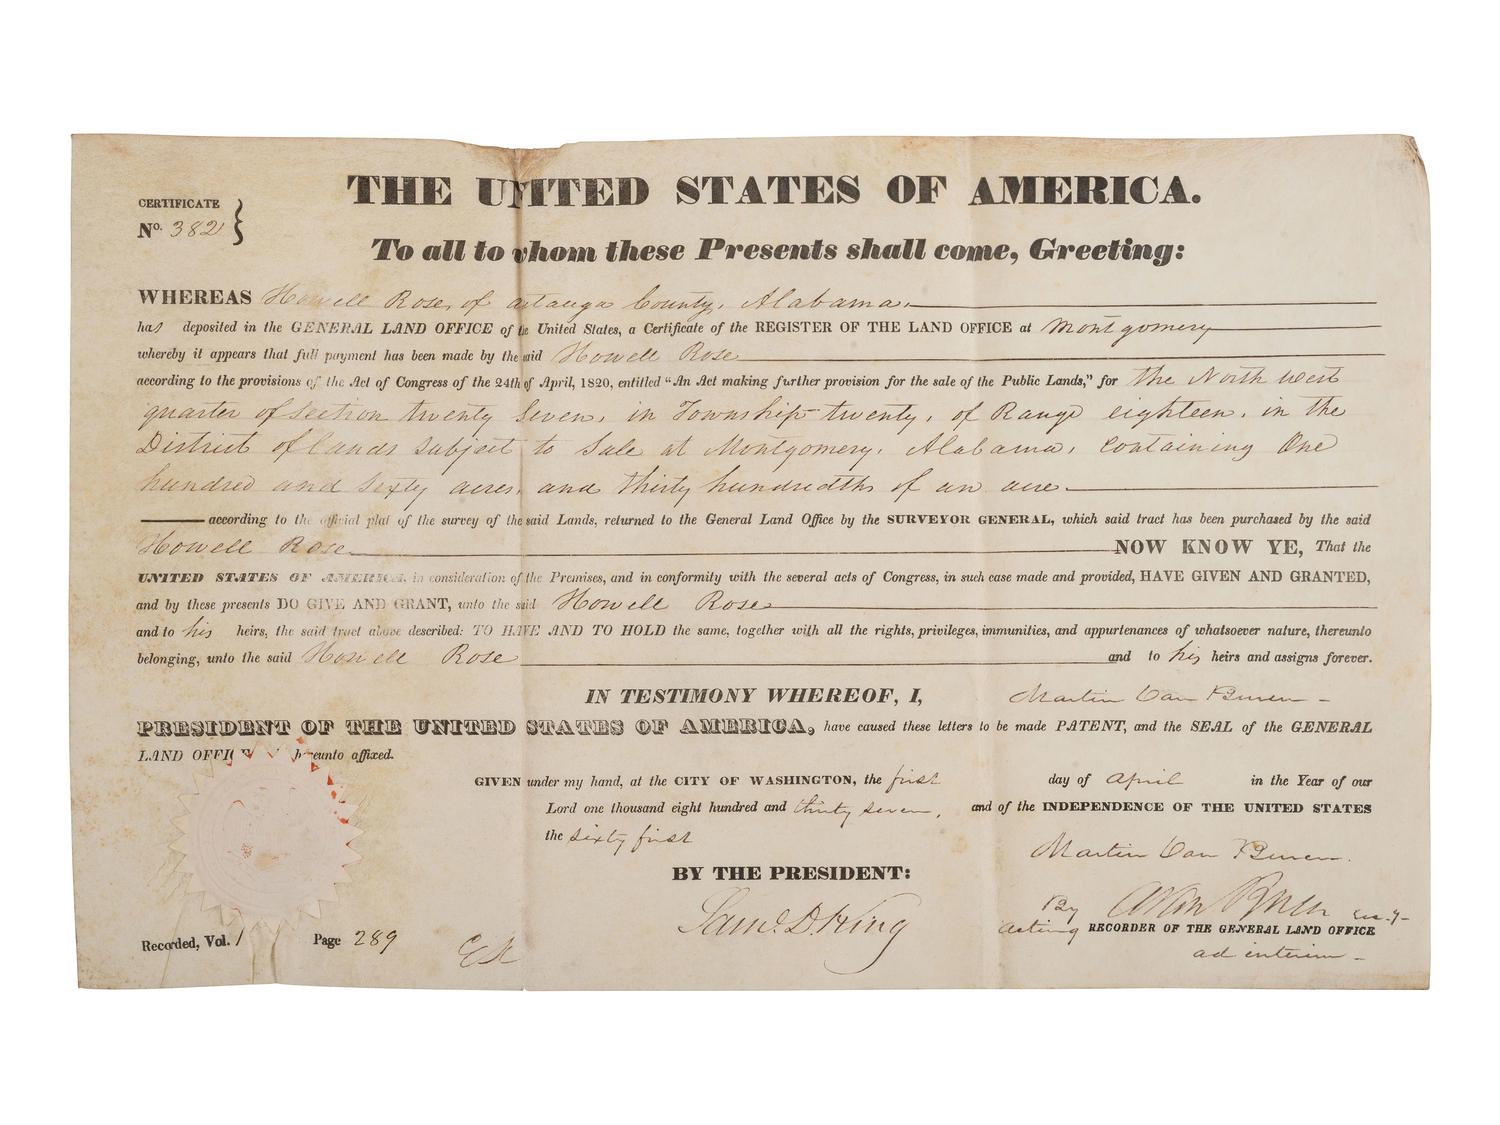 THE UNITED STATES OF AMERICA.
CERTIFICATE
No. 382
To all to whom these Presents shall come, Greeting:
WHEREAS Howell Rose, of autauga County, Alabama,
has deposited in the GENERAL LAND OFFICE of the United States, a Certificate of the REGISTER OF THE LAND OFFICE at Montgomery
whereby it appears that full payment has been made by the said Howell Rose
according to the provisions of the Act of Congress of the 24th of April, 1820, entitled "An Act making further provision for the sale of the Public Lands," for the North west
quarter of Section twenty Seven, in Township twenty, of Range eighteen, in the
District of lands subject to Sale at Montgomery, Alabama, containing One
hundred and sixty acres, and thirty hundredths of an acre
according to the official plat of the survey of the said Lands, returned to the General Land Office by the SURVEYOR GENERAL, which said tract has been purchased by the said
Howell Rose NOW KNOW YE, That the
UNITED STATES OF AMERICA, in consideration of the Premises, and in conformity with the several acts of Congress, in such case made and provided, HAVE GIVEN AND GRANTED,
and by these presents DO GIVE AND GRANT, unto the said Howell Rose
and to his heirs, the said tract above described: TO HAVE AND TO HOLD the same, together with all the rights, privileges, immunities, and appurtenances of whatsoever nature, thereunto
belonging, unto the said Howell Rose and to his heirs and assigns forever.
IN TESTIMONY WHEREOF, I, Martin Van Buren
PRESIDENT OF THE UNITED STATES OF AMERICA, have caused these letters to be made PATENT, and the SEAL of the GENERAL
LAND OFFICE to be hereunto affixed.
GIVEN under my hand, at the CITY OF WASHINGTON, the first day of April in the Year of our
Lord one thousand eight hundred and thirty seven, and of the INDEPENDENCE OF THE UNITED STATES
the sixty first
BY THE PRESIDENT: Martin Van Buren.
Saml. D. King By Sec.y
acting RECORDER OF THE GENERAL LAND OFFICE
ad interim
Recorded, Vol. 1 Page 289